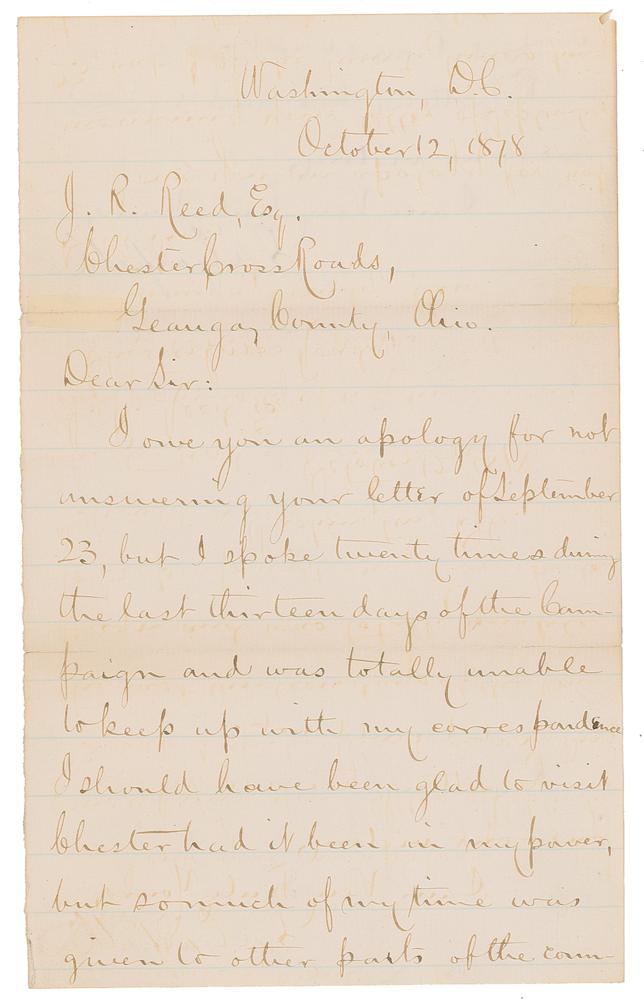 Washington, D.C.
October 12, 1878
J. R. Reed, Esq.
Chester Cross Roads,
Geauga, County, Ohio.
Dear Sir:
I owe you an apology for not
answering your letter of September
23, but I spoke twenty times during
the last thirteen days of the Cam-
paign and was totally unable
to keep up with my correspondence
I should have been glad to visit
Chester had it been in my power,
but so much of my time was
given to other parts of the coun-